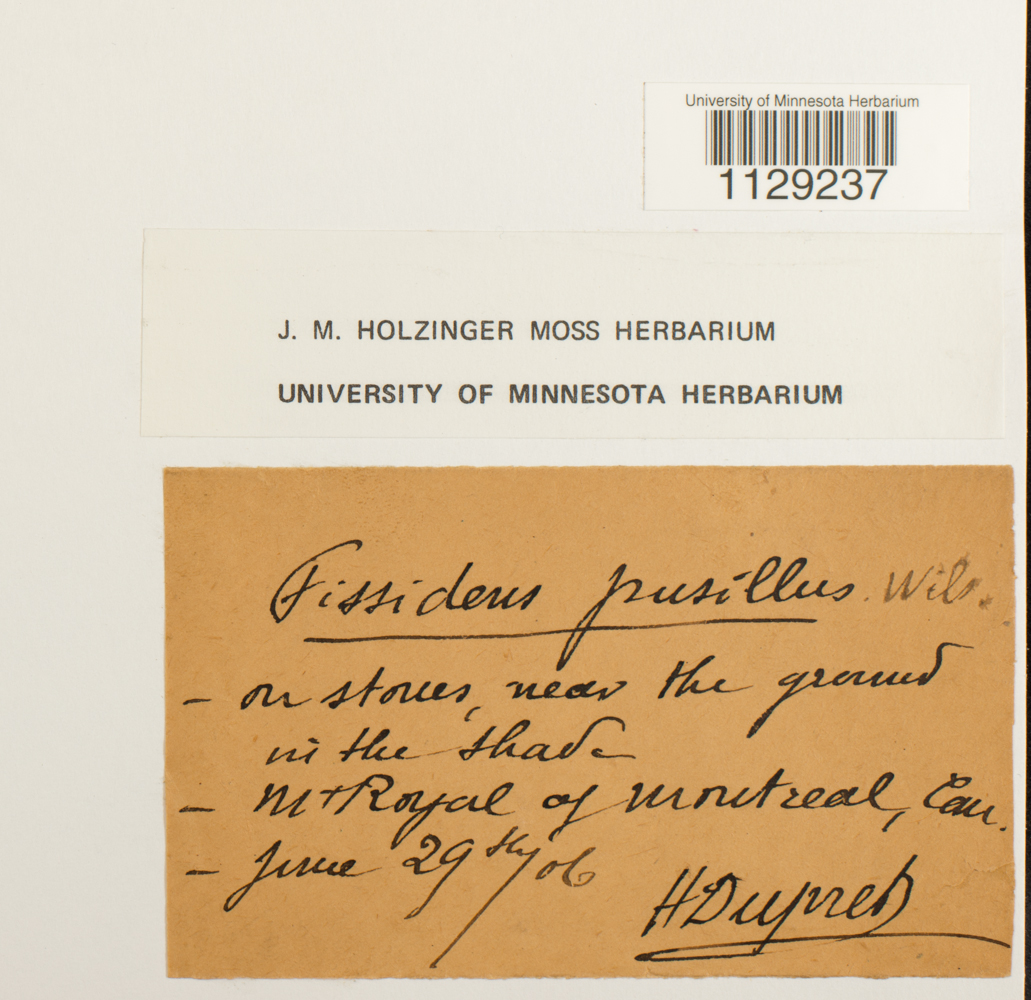 University of Minnesota Herbarium
1129237
J. M. HOLZINGER MOSS HERBARIUM
UNIVERSITY OF MINNESOTA HERBARIUM
Fissidens pusillus Wils.
- on stones, near the ground
in the shade
- Mt Royal of Montreal, Can.
- June 29th/06
HDupret